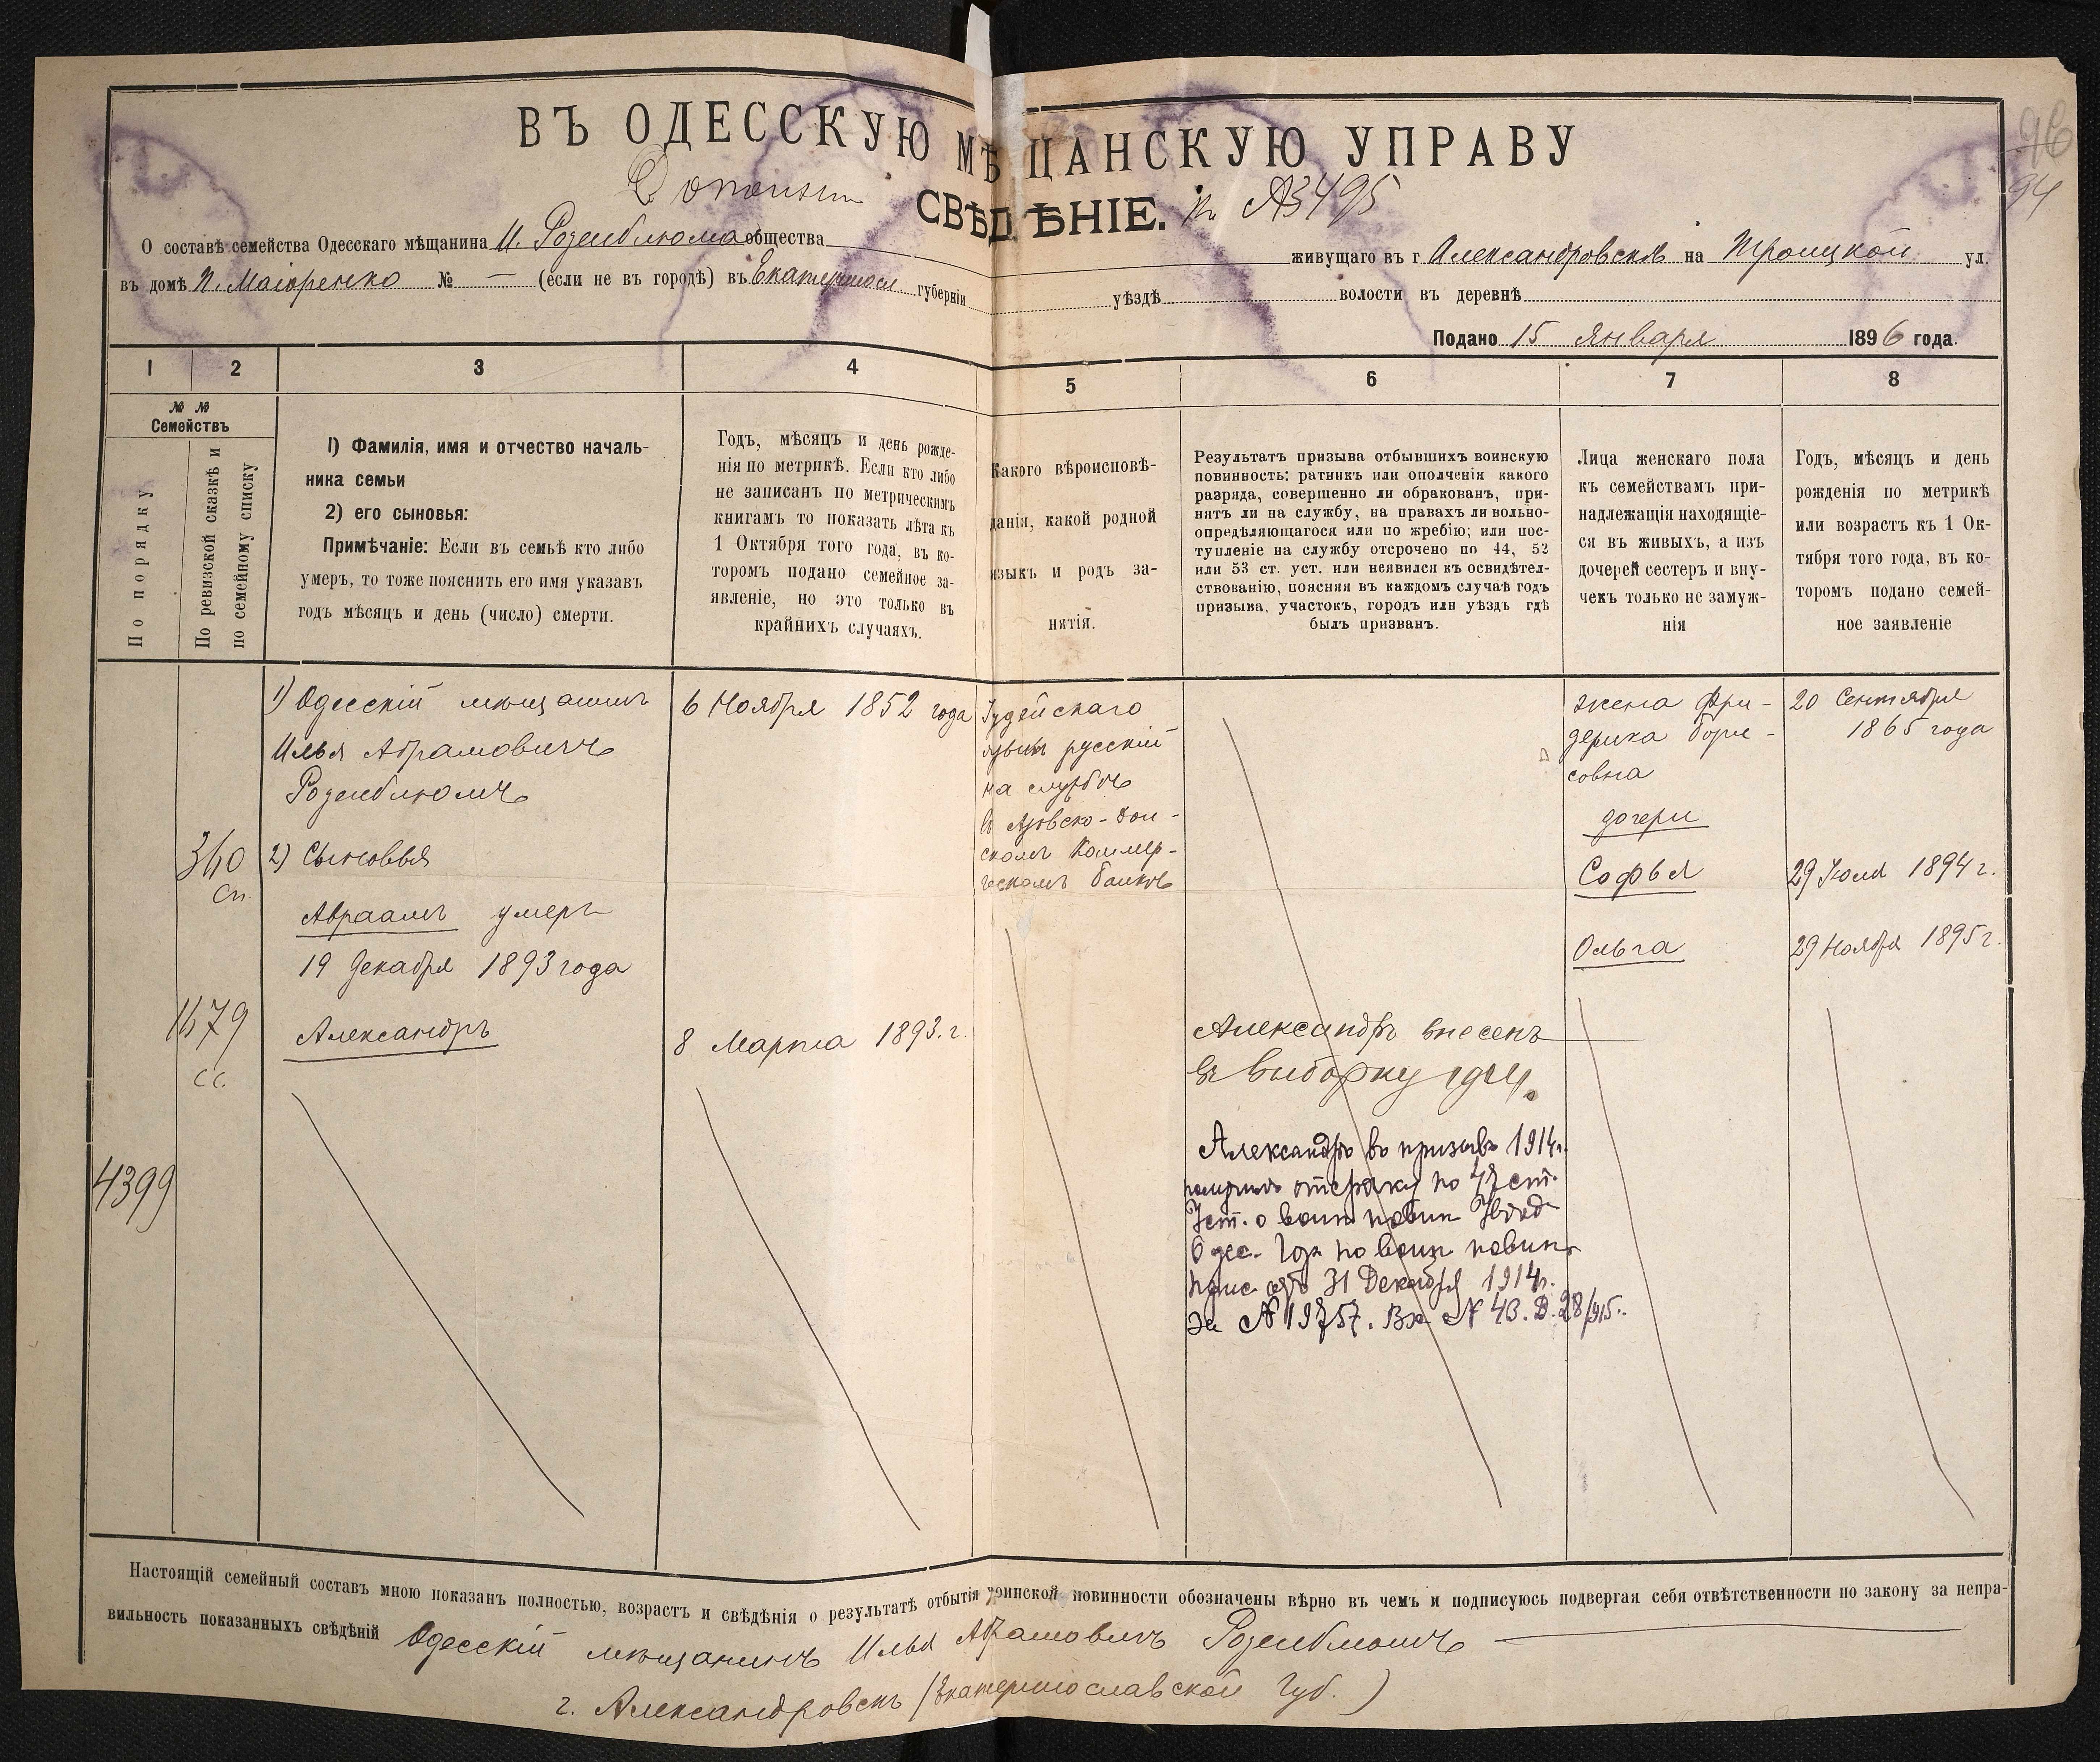 ВЪ ОДЕССКУЮ МѢЩАНСКУЮ УПРАВУ
СВѢДѢНІЕ.
96
94
О составѣ семейства Одесскаго мѣщанина И. Розенблюма общества живущаго въ г Александровскѣ на Троицкой ул.
въ домѣ П. Маюренко № — (если не въ городѣ) въ Екатериносл губерніи уѣздѣ волости въ деревнѣ
Подано 15 Января 1896 года.
1 2 3 4 5 6 7 8
№ №
Семействъ
По порядку
По ревизской сказкѣ и
по семейному списку
1) Фамилія, имя и отчество началь-
ника семьи
2) его сыновья:
Примѣчаніе: Если въ семьѣ кто либо
умеръ, то тоже пояснить его имя указавъ
годъ мѣсяцъ и день (число) смерти.
Годъ, мѣсяцъ и день рожде-
нія по метрикѣ. Если кто либо
не записанъ по метрическимъ
книгамъ то показать лѣта къ
1 Октября того года, въ ко-
торомъ подано семейное за-
явленіе, но это только въ
крайнихъ случаяхъ.
Какого вѣроисповѣ-
данія, какой родной
языкъ и родъ за-
нятія.
Результатъ призыва отбывшихъ воинскую
повинность: ратникъ или ополченія какого
разряда, совершенно ли обракованъ, при-
нятъ ли на службу, на правахъ ли вольно-
опредѣляющагося или по жребію; или пос-
тупленіе на службу отсрочено по 44, 52
или 53 ст. уст. или неявился къ освидѣтел-
ствованію, поясняя въ каждомъ случаѣ годъ
призыва, участокъ, городъ или уѣздъ гдѣ
былъ призванъ.
Лица женскаго пола
къ семействамъ при-
надлежащія находящіе-
ся въ живыхъ, а изъ
дочерей сестеръ и вну-
чекъ только не замуж-
нія
Годъ, мѣсяцъ и день
рожденія по метрикѣ
или возрастъ къ 1 Ок-
тября того года, въ ко-
торомъ подано семей-
ное заявленіе
1) Одесскій мѣщанинъ
Илья Абрамовичъ
Розенблюмъ
2) Сыновья
Авраамъ умеръ
19 Декабря 1893 года
Александръ
360
Сп.
1679
СС.
4399
6 Ноября 1852 года
8 Марта 1893. г.
Іудейскаго
языкъ русскій
на службѣ
въ Азовско-Дон-
скомъ Коммер-
ческомъ банкѣ
Александръ внесенъ
въ выборку 1914.
Александръ въ призывъ 1914г.
отсрочку по ст.
Уст. о воин повин Увѣд
Одес. Гор по воин повин.
прис. отъ 31 Декабря 1914г.
за № 19757. Вх № 43. Д. 28/915.
жена Фри-
дерика Бори-
совна
дочери
Софья
Ольга
20 Сентября
1865 года
29 Іюля 1894 г.
29 Ноября 1895 г.
Настоящій семейный составъ мною показанъ полностью, возрастъ и свѣдѣнія о результатѣ отбытія воинской повинности обозначены вѣрно въ чемъ и подписуюсь подвергая себя отвѣтственности по закону за непра-
вильность показанныхъ свѣдѣній Одесскій мѣщанинъ Илья Абрамовичъ Розенблюмъ
г. Александровскъ (Екатеринославской Губ.)